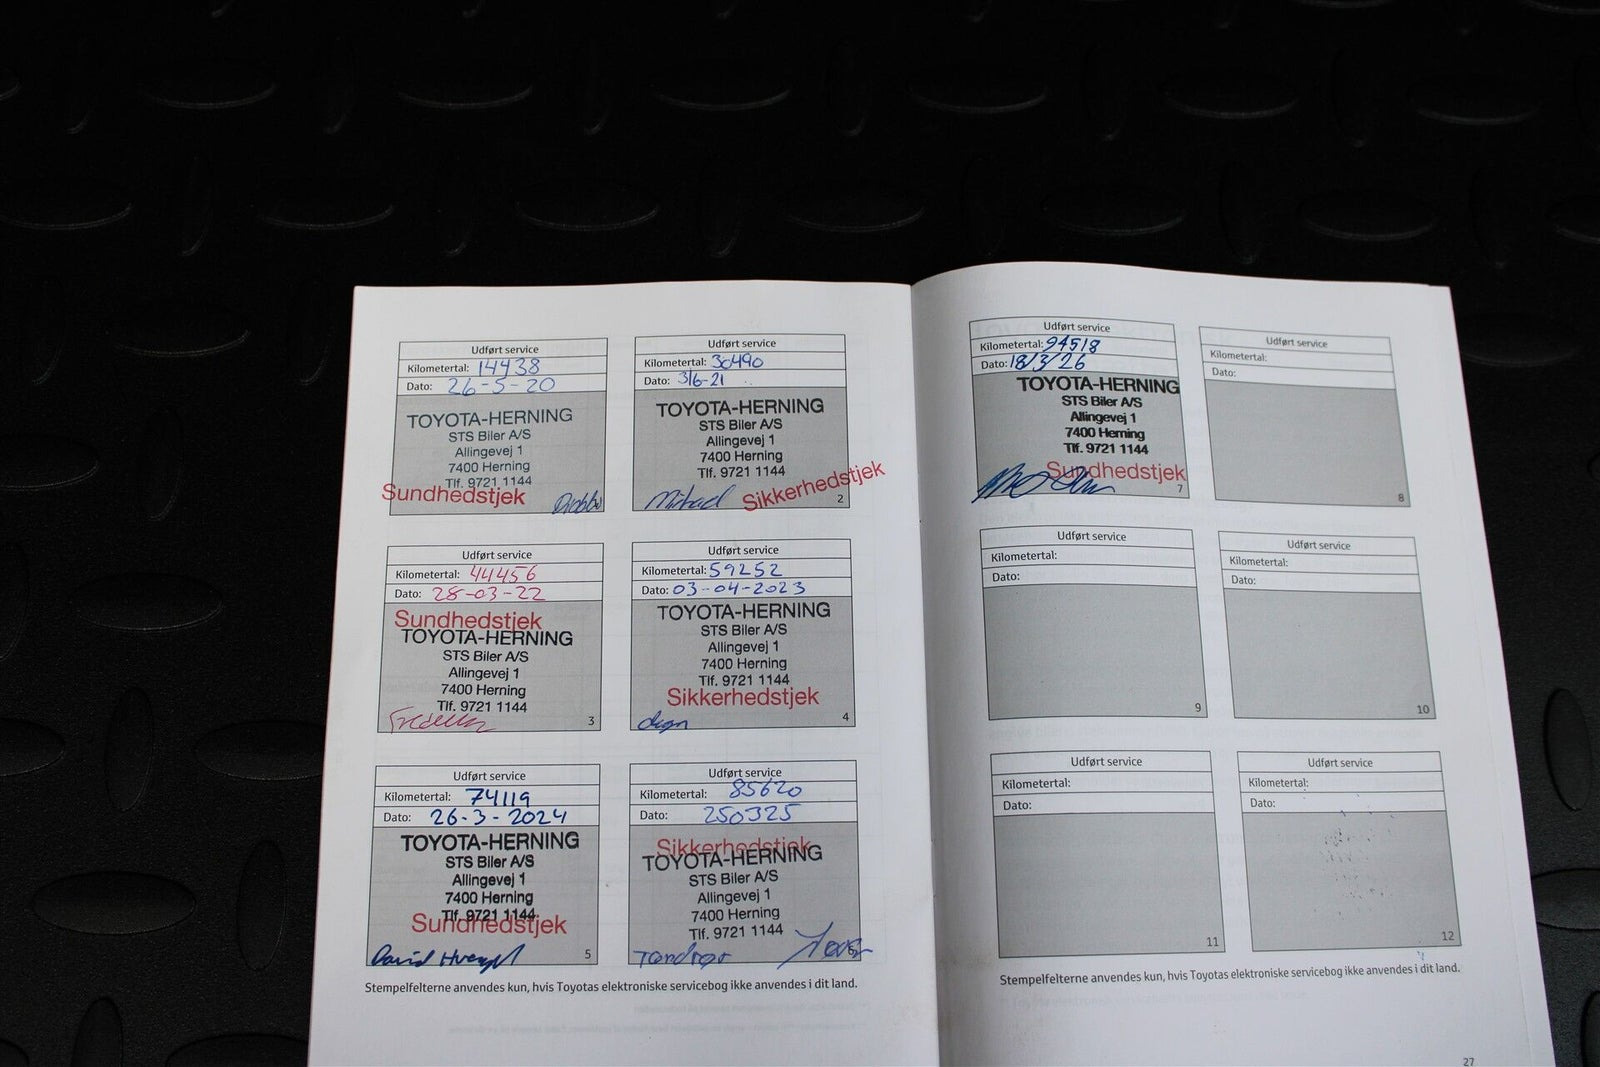 Udført service
Kilometertal: 14438
Dato: 26-5-20
TOYOTA-HERNING
STS Biler A/S
Allingevej 1
7400 Herning
Tlf. 9721 1144
Sundhedstjek
Udført service
Kilometertal: 30490
Dato: 3/6-21
TOYOTA-HERNING
STS Biler A/S
Allingevej 1
7400 Herning
Tlf. 9721 1144
Sikkerhedstjek
2
Udført service
Kilometertal: 44456
Dato: 28-03-22
Sundhedstjek
TOYOTA-HERNING
STS Biler A/S
Allingevej 1
7400 Herning
Tlf. 9721 1144
3
Udført service
Kilometertal: 59252
Dato: 03-04-2023
TOYOTA-HERNING
STS Biler A/S
Allingevej 1
7400 Herning
Tlf. 9721 1144
Sikkerhedstjek
4
Udført service
Kilometertal: 74119
Dato: 26-3-2024
TOYOTA-HERNING
STS Biler A/S
Allingevej 1
7400 Herning
Tlf. 9721 1144
Sundhedstjek
David
5
Udført service
Kilometertal: 85620
Dato: 250325
Sikkerhedstjek
TOYOTA-HERNING
STS Biler A/S
Allingevej 1
7400 Herning
Tlf. 9721 1144
Stempelfelterne anvendes kun, hvis Toyotas elektroniske servicebog ikke anvendes i dit land.
Udført service
Kilometertal: 94518
Dato: 18/3/26
TOYOTA-HERNING
STS Biler A/S
Allingevej 1
7400 Herning
Tlf. 9721 1144
Sundhedstjek
7
Udført service
Kilometertal:
Dato:
8
Udført service
Kilometertal:
Dato:
9
Udført service
Kilometertal:
Dato:
10
Udført service
Kilometertal:
Dato:
11
Udført service
Kilometertal:
Dato:
12
Stempelfelterne anvendes kun, hvis Toyotas elektroniske servicebog ikke anvendes i dit land.
27